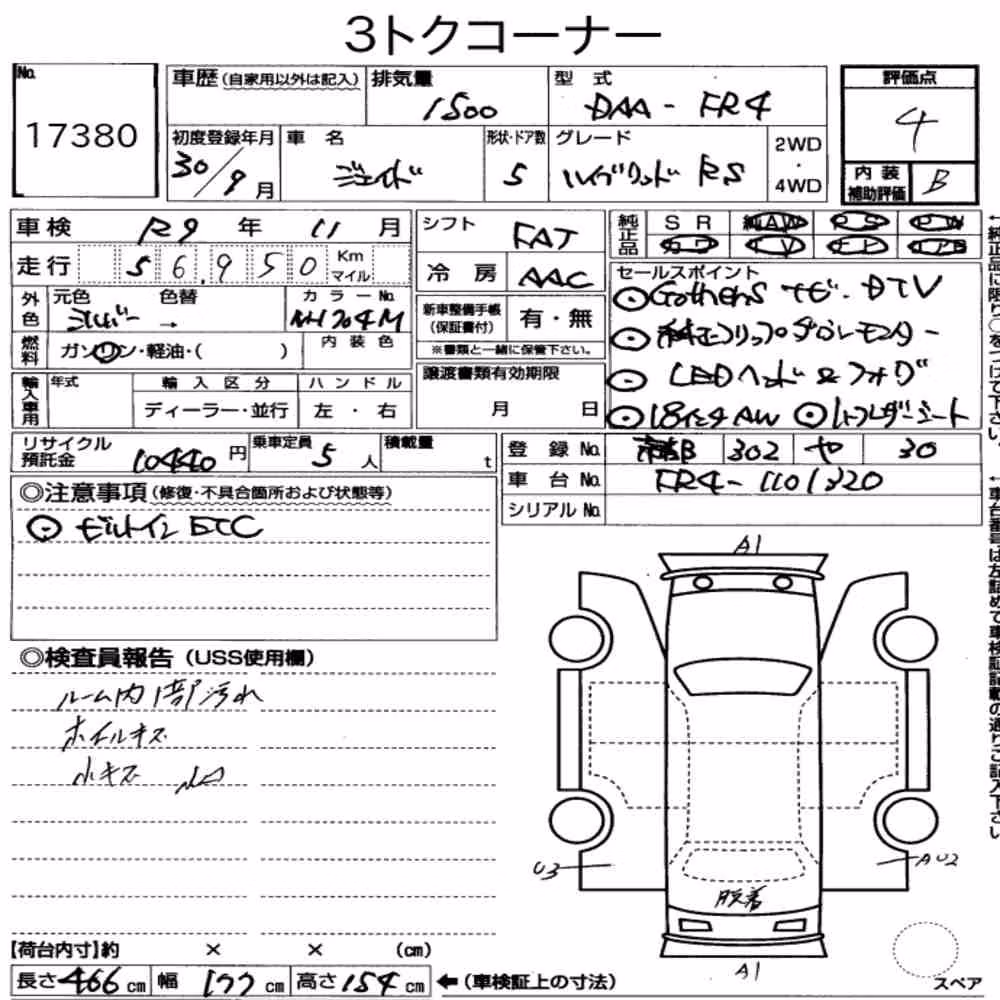 3トクコーナー
No.
17380
車歴(自家用以外は記入)
排気量
1500
型式
DAA-FR4
評価点
4
初度登録年月
30/9月
車名
ジェイド
形状・ドア数
5
グレード
ハイブリッド RS
2WD
・
4WD
内装
補助評価
B
車検 R9年 11月
シフト
FAT
純正品
SR 純AW PS PW
走行 56,950 Km
マイル
冷房 AAC
セールスポイント
⊙Gathersナビ・DTV
外色
元色 シルバー → 色替
カラーNo.
NH704M
新車整備手帳
(保証書付)
有・無
⊙純正フリップダウンモニター
燃料
ガソリン・軽油・( )
内装色
※書類と一緒に保管下さい。
⊙LEDヘッド&フォグ
輸入車用
年式
輸入区分
ハンドル
ディーラー・並行
左・右
譲渡書類有効期限
月 日
⊙18インチAW
リサイクル
預託金
10440円
乗車定員
5人
積載量
t
登録No. 302 や 30
車台No. FR4-1101320
シリアルNo.
◎注意事項(修復・不具合箇所および状態等)
⊙ビルトインETC
◎検査員報告(USS使用欄)
ルーム内1部汚れ
ホイルキズ
小キズ 凹
A1
U3
AU2
脱着
A1
スペア
【荷台内寸】約 × × (cm)
長さ466cm 幅177cm 高さ154cm ←(車検証上の寸法)
←純正品に限り○をつけて下さい。
←車台番号は左詰めで車検証記載の通りご記入下さい